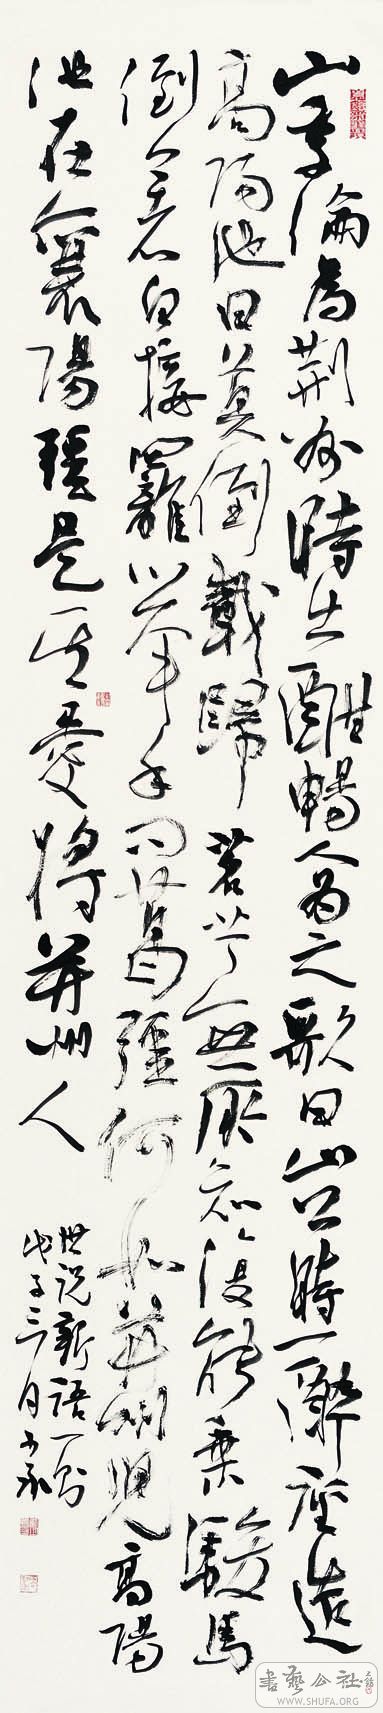 山季倫為荊州時出酣暢人為之歌曰山公時一醉徑造
高陽池日莫倒載歸茗艼無所知復能乘駿馬
倒著白接䍦舉手問葛彊何如并州兒高陽
池在襄陽彊是其愛將并州人
世說新語一則
戊子三月
書藝公社
WWW.SHUFA.ORG